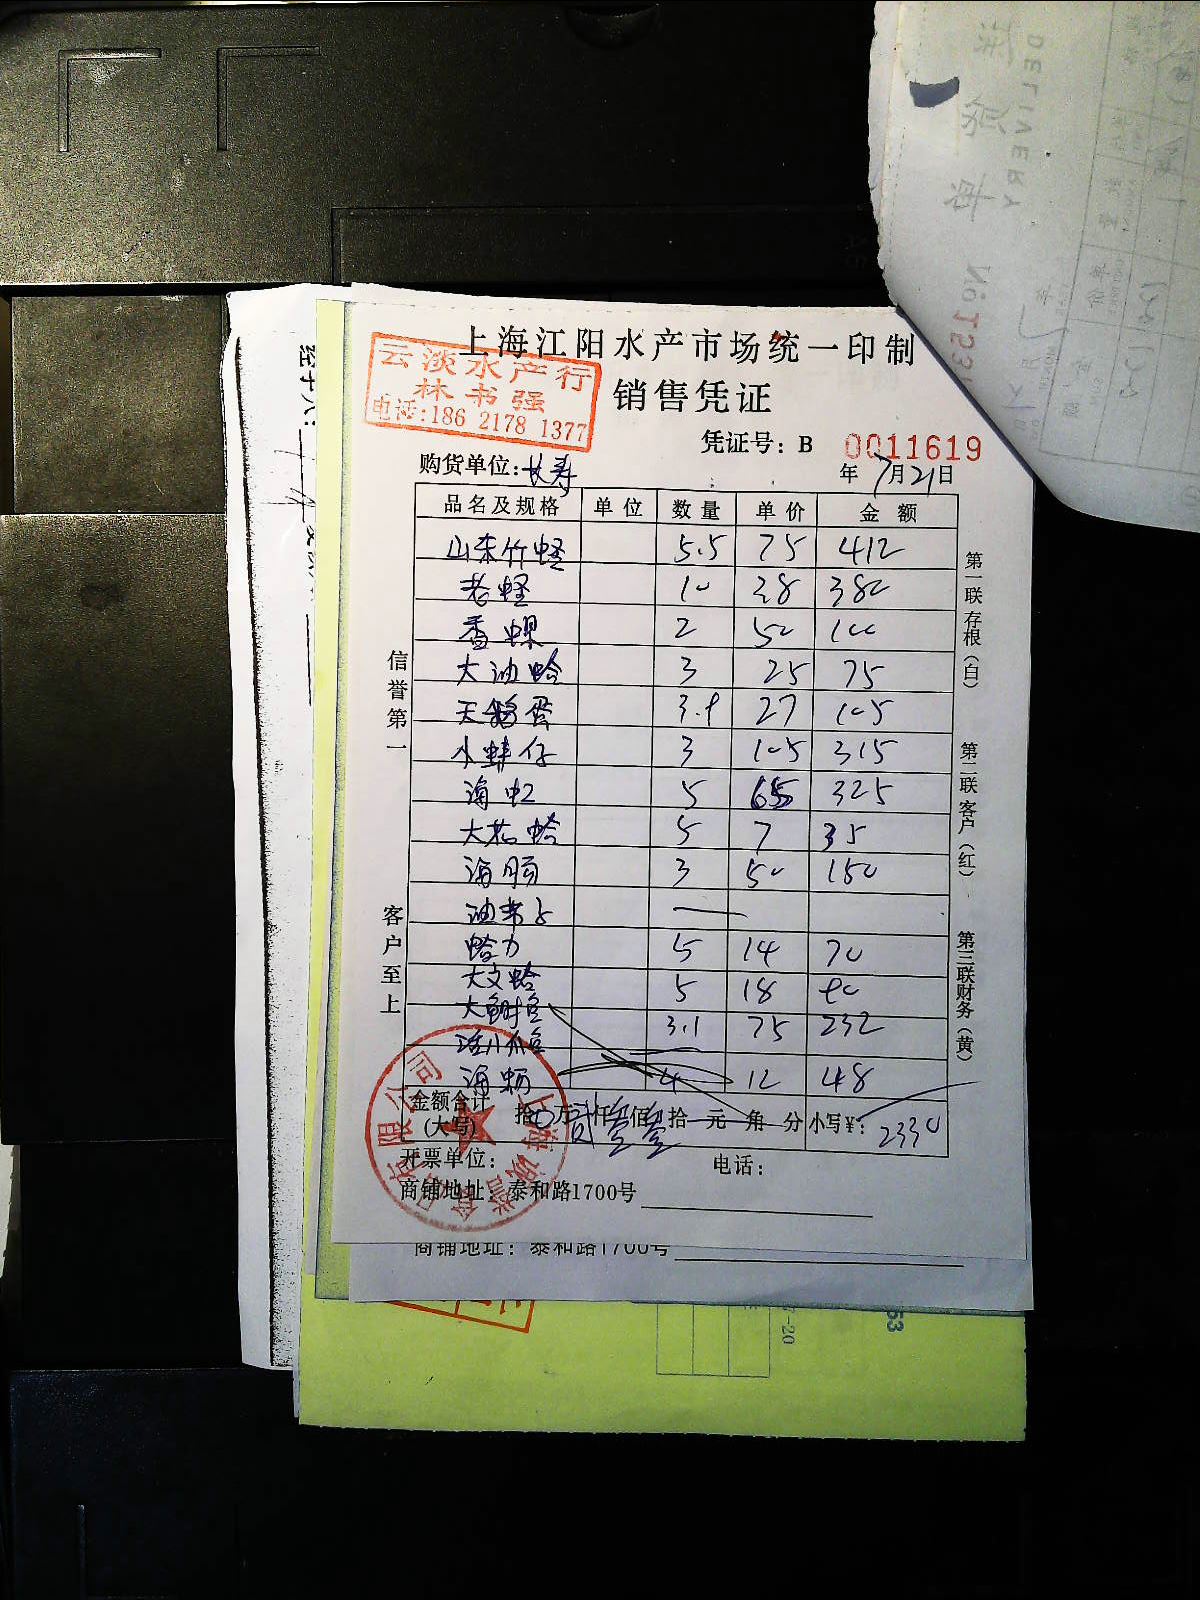 上海江阳水产市场统一印制
云淡水产行
林书强
电话:186 2178 1377
销售凭证
凭证号: B 0011619
购货单位:长寿 年7月21日
品名及规格 单位 数量 单价 金额
山东竹蛏 5.5 75 412
老蛏 10 38 380
香螺 2 50 100
大油蛤 3 25 75
天鹅蛋 3.9 27 105
小蚌仔 3 105 315
海虹 5 65 325
大花蛤 5 7 35
海肠 3 50 150
蛤力 5 14 70
大文蛤 5 18 90
3.1 75 232
4 12 48
金额合计
(大写) 拾0万贰仟叁佰叁拾一元 角 分 小写¥: 2330
开票单位: 电话:
商铺地址: 泰和路1700号
信誉第一
客户至上
第一联存根(白)
第二联客户(红)
第三联财务(黄)
商铺地址: 泰和路1700号
DELIVERY